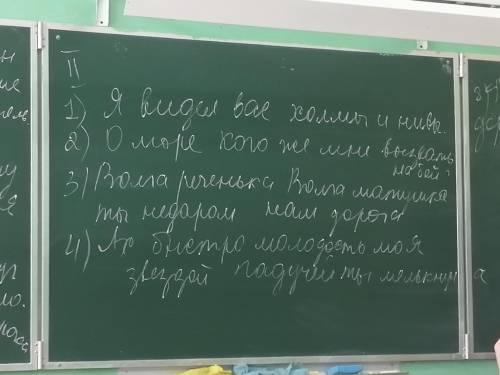 II
1) Я видел вас холмы и нивы.
2) О море кого же мне вызвать
на бой?
3) Волга реченька Волга матушка
ты недаром нам дорога
4) Ах быстро молодость моя
звездой падучей ты мелькнула